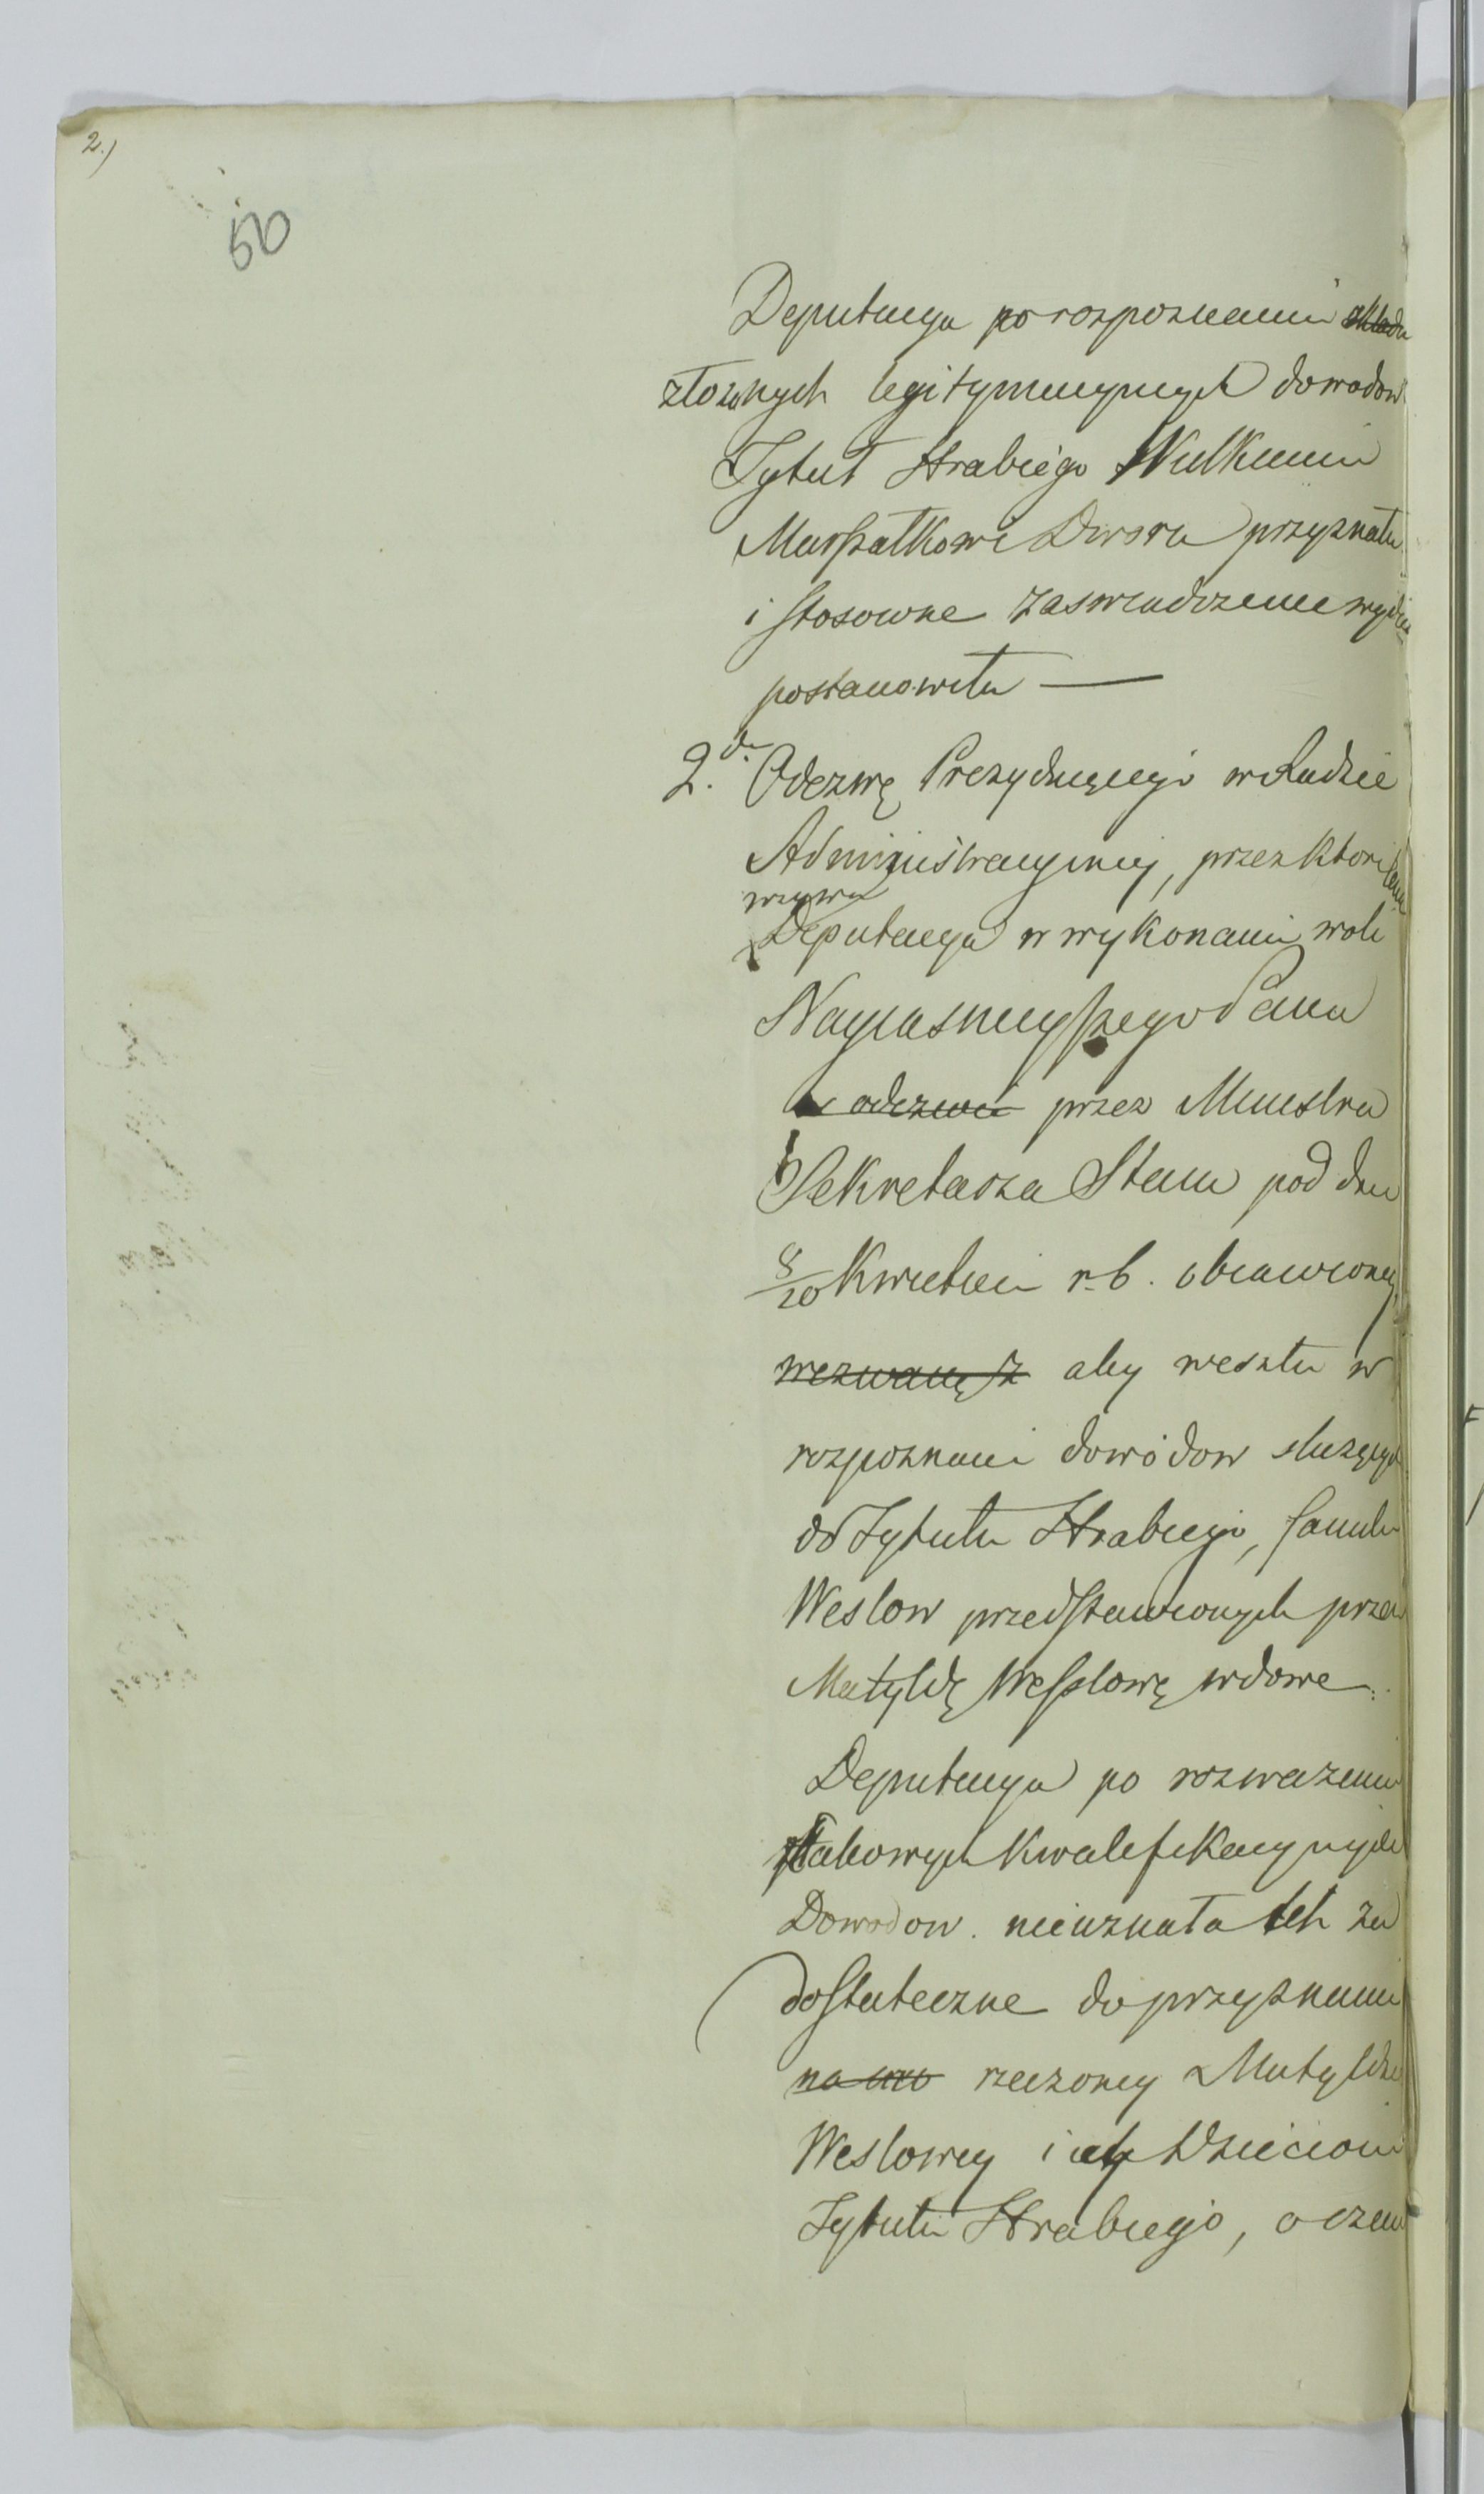 2.)
50
Deputacya po rozpoznaniu
złożonych legitymacyjnych dowodow
Tytuł Hrabiego
Marszałkowi Dworu przyznała
i stosowne zaswiadczenie wydać
postanowiła —
2.do Odezwę Prezydującego w Radzie
Administracyiney, przez którą
wzywa
Deputacya w wykonaniu woli
Nayiasnieyszego Pana
odezwie przez Ministra
Sekretarza Stanu pod dn
8/20 Kwietnia r. b. obiawioney
wezwaną z aby weszła w
rozpoznanie dowódow służących
do Tytułu Hrabiego, familii
Weslow przedstawionych przez
Matyldę Wesslowę wdowę
Deputacya po rozwazeniu
takowych kwalifikacyinych
Dowodow. nieuznała ich za
dostateczne do przyznania
rzeczoney Matyldzie
Weslowey i iey Dzieciom
Tytułu Hrabiego, o czem